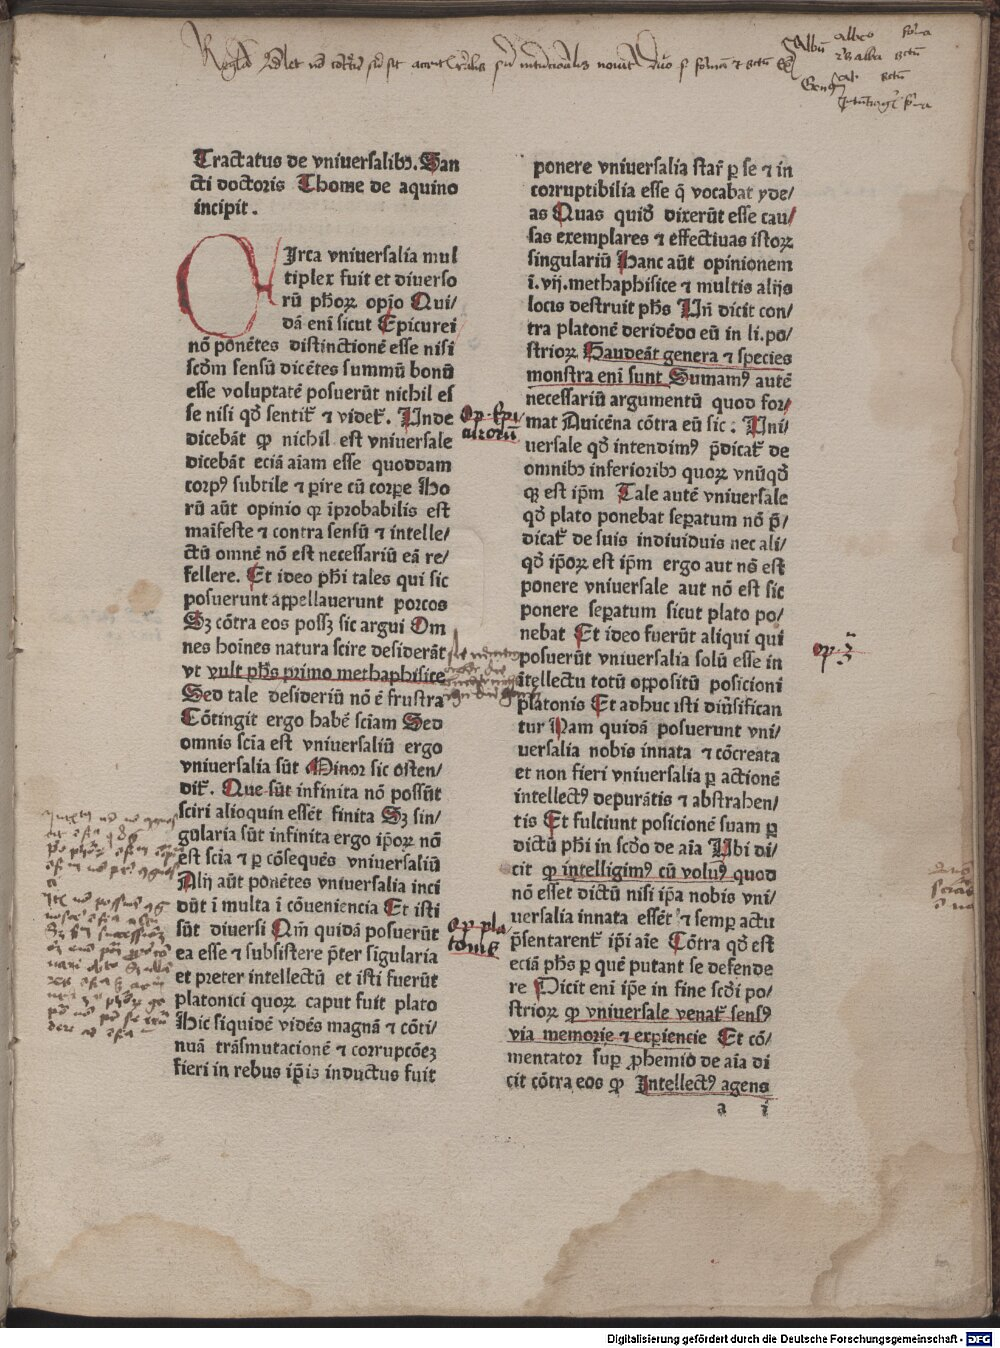 Tractatus de vniuersalibꝫ. San
cti doctoris Thome de aquino
incipit.
CIrca vniuersalia mul
tiplex fuit et diuerso
rū ph̄oꝝ opīo Qui/
dā enī sicut Epicurei
nō ponētes distinctionē esse nisi
scd̄m sensū dicētes summū bonū
esse voluptatē posuerūt nichil es
se nisi qd̄ sentit̄ ⁊ videt̄. Unde
dicebāt ꝙ nichil est vniuersale
dicebāt eciā aīam esse quoddam
corpꝰ subtile ⁊ ꝑire cū corꝑe Ho
rū aūt opinio ꝙ īprobabilis est
maīfeste ⁊ contra sensū ⁊ intelle/
ctū omnē nō est necessariū eā re/
fellere. Et ideo ph̄i tales qui sic
posuerunt appellauerunt porcos
Sꝫ cōtra eos possꝫ sic argui Om
nes hoīnes natura scire desiderāt
vt vult ph̄s primo methaphisice
Sed tale desideriū nō ē frustra
Cōtingit ergo habē sciam Sed
omnis scīa est vniuersaliū ergo
vniuersalia sūt Minor sic osten/
dit̄. Que sūt infinita nō possūt
sciri alioquin essēt finita Sꝫ sin/
gularia sūt infinita ergo ip̄oꝝ nō
est scīa ⁊ ꝑ cōsequēs vniuersaliū
Alij aūt ponētes vniuersalia inci
dūt ī multa ī cōueniencia Et isti
sūt diuersi Qm̄ quidā posuerūt
ea esse ⁊ subsistere p̄ter sīgularia
et preter intellectū et isti fuerūt
platonici quoꝝ caput fuit plato
Hic siquidē vidēs magnā ⁊ cōti/
nuā trāsmutacionē ⁊ corrupcōeꝫ
fieri in rebus ip̄is inductus fuit
Op. Epi
curorū
op pla
tonis
ponere vniuersalia star̄ ꝑ se ⁊ in
corruptibilia esse q̄ vocabat yde/
as Quas quid̄ dixerūt esse cau/
sas exemplares ⁊ effectiuas istoꝝ
singulariū Hanc aūt opinionem
ī. vij. methaphisice ⁊ multis alijs
locis destruit ph̄s Un̄ dicit con/
tra platonē deridēdo eū in li. po/
strioꝝ Gaudeāt genera ⁊ species
monstra enī sunt Sumamꝰ autē
necessariū argumentū quod for/
mat Auicēna cōtra eū sic. Uni/
uersale qd̄ intendimꝰ p̄dicat̄ de
omnibꝫ inferioribꝫ quoꝝ vnūqd̄
qꝫ est ip̄m Tale autē vniuersale
qd̄ plato ponebat seꝑatum nō p̄/
dicat̄ de suis indiuiduis nec ali/
qd̄ ip̄oꝝ est ip̄m ergo aut nō est
ponere vniuersale aut nō est sic
ponere seꝑatum sicut plato po/
nebat Et ideo fuerūt aliqui qui
posuerūt vniuersalia solū esse in
ītellectu totū oppositū posicioni
platonis Et adhuc isti diūsifican
tur Nam quidā posuerunt vni/
uersalia nobis innata ⁊ cōcreata
et non fieri vniuersalia ꝑ actionē
intellectꝰ depurātis ⁊ abstrahen/
tis Et fulciunt posicionē suam ꝑ
dictū ph̄i in scd̄o de aīa Ubi di/
cit ꝙ intelligimꝰ cū volūꝰ quod
nō esset dictū nisi ip̄a nobis vni/
uersalia innata essēt ⁊ semꝑ actu
p̄sentarent̄ ip̄i aīe Cōtra qd̄ est
eciā ph̄s ꝑ quē putant se defende
re Dicit enī ip̄e in fine scd̄i po/
strioꝝ ꝙ vniuersale venat̄ sensꝰ
via memorie ⁊ exꝑiencie Et cō/
mentator suꝑ ꝓhemio de aīa di
cit cōtra eos ꝙ Intellectꝰ agens
a i
Digitalisierung gefördert durch die Deutsche Forschungsgemeinschaft - DFG